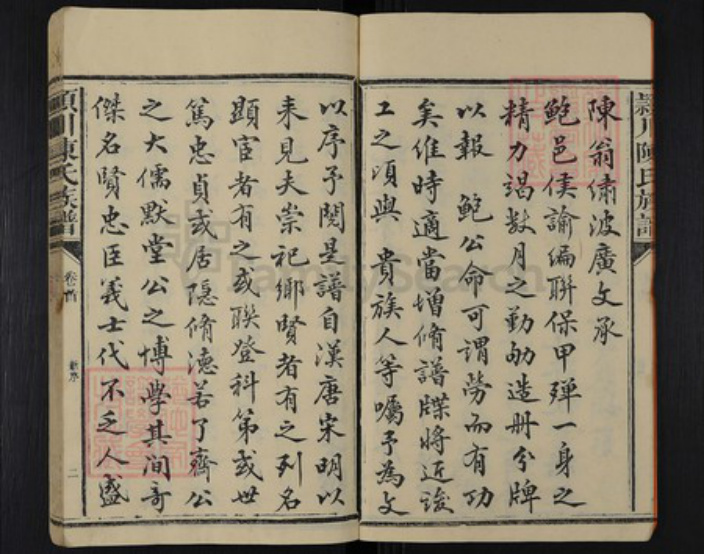 陳翁繡波廣文承
鮑邑侯諭編聯保甲殫一身之
精力竭數月之勤劬造册分牌
以報 鮑公命可謂勞而有功
矣維時適當增脩譜牒將近竣
工之頃與 貴族人等囑予為文
以序予閱是譜自漢唐宋明以
來見夫崇祀鄉賢者有之列名
顯宦者有之或聯登科第或世
篤忠貞或居隱脩德若了齋公
之大儒默堂公之博學其間奇
傑名賢忠臣義士代不乏人盛
潁川陳氏族譜
卷首
二
FamilySearch